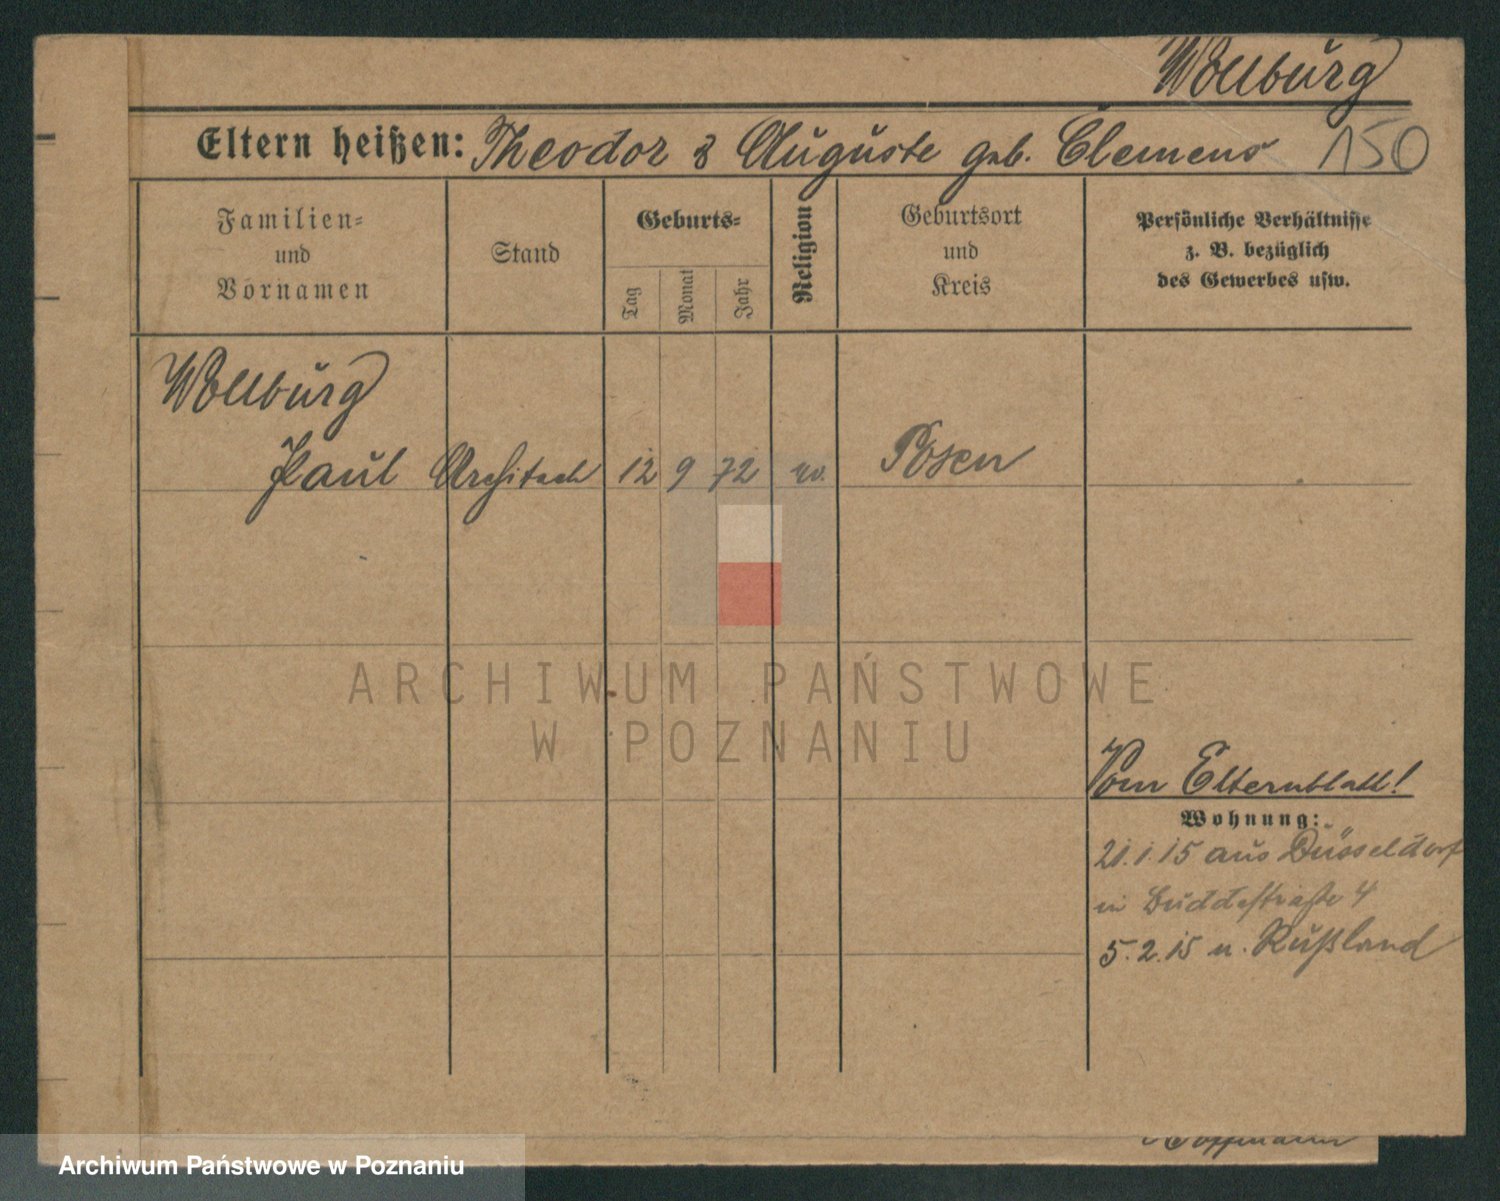 Wollburg
Eltern heißen: Theodor & Auguste geb. Clemens 150
Familien- und Vornamen
Stand
Geburts-
Tag
Monat
Jahr
Religion
Geburtsort und Kreis
Persönliche Verhältnisse z. B. bezüglich des Gewerbes usw.
Wollburg
Paul Architect 12 9 72 ev. Posen
ARCHIWUM PAŃSTWOWE
W POZNANIU
Vom Elternblatt!
Wohnung:
21.1.15 aus Düsseldorf
in Buddestraße 4
5.2.15 n. Rußland
Hoffmann
Archiwum Państwowe w Poznaniu